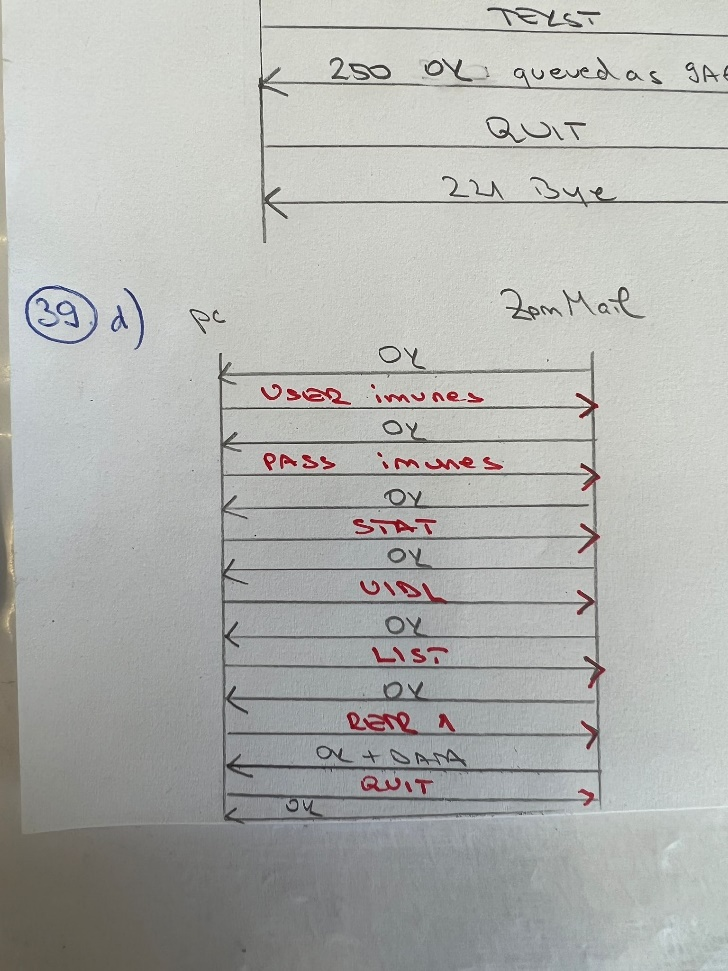 TEKST
250 OK: queued as 9A
QUIT
221 Bye
39. d) pc ZpmMail
OK
USER imunes
OK
PASS imunes
OK
STAT
OK
UIDL
OK
LIST
OK
RETR 1
OK + DATA
QUIT
OK